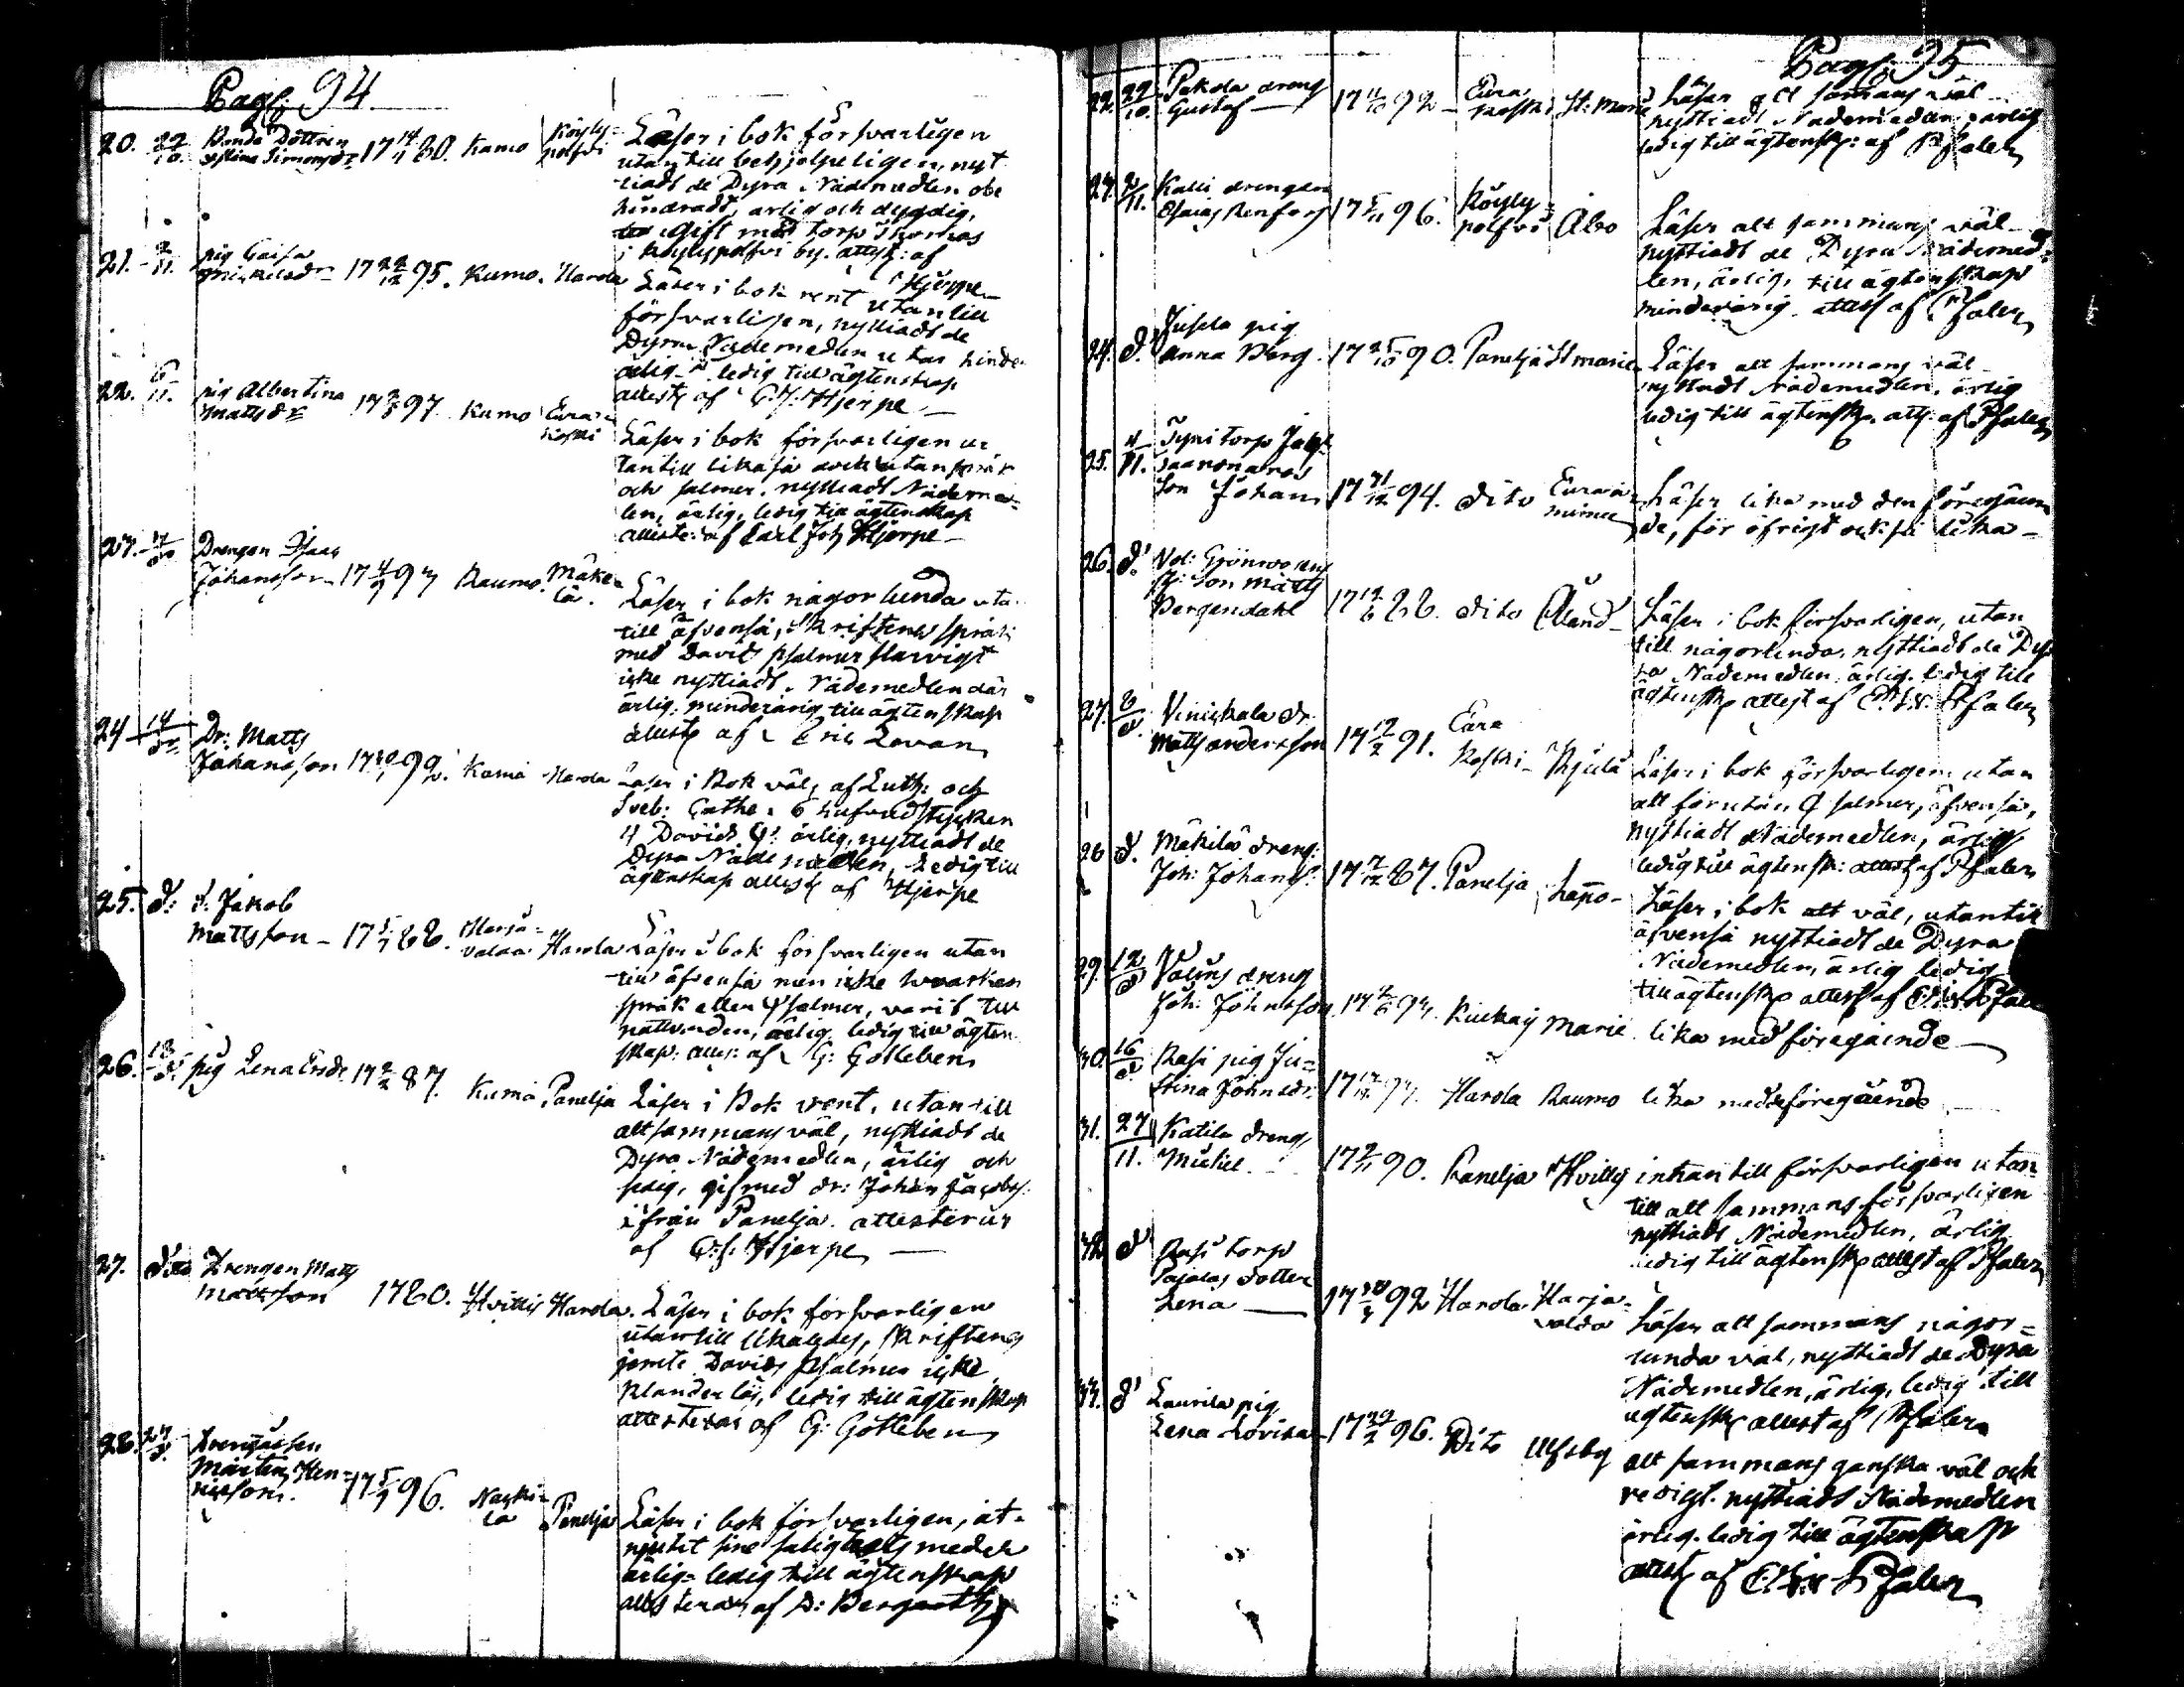 Pag: 94
20. 22/10. Bonde Döttren
Stina Simonsdr 17 14/1 80. Kumo Köyly=
polfvi
Läser i bok försvarligen
utan till behjelpeligen, nyt
tiadt de Dyra Nådemedlen obe
hindradt, ärlig och dygdig,
Gift med torp Thomas
i Köylypolfvi by. attest: af
Hjerpe
21. 2/11. pig Caisa
Mickelsdr 17 22/12 95. Kumo. Harola
Läser i bok rent utan till
försvarligen, nyttiadt de
Dyra Nådemedlen utan hinder
ärlig ledig till ägtenskap
attest af C J: Hjerpe
22. 6/11. pig Albertina
Mattsdr 17 97. Kumo Eura
Koski
Läser i bok försvarligen u
tantill likaså ock utan språk
och psalmer. nyttiadt Nådeme=
len, ärlig, ledig till ägtenskap
atteste: af Carl Joh Hjerpe
23. Drengen Isaac
Johansson 17 4/9 93 Raumo. Mäke=
lä.
Läser i bok någorlunda uta
till äfvenså, Skriftens språk
med Davids psalmer slarvigt
icke nyttiadt. Nådemedlen där
ärlig, minderårig till ägtenskap
attest af Eric Lovan
24 14/ Dr: Matts
Johansson 17 92. Kumå Harola
Läser i Bok väl, af Luth: och
Sveb: Cathe: 6 hufvudstycken
4 Davids Ps: ärlig, nyttiadt de
Dyra Nåde medlen, ledig till
ägtenskap attest af Hjerpe
25. d: d. Jakob
Mattsson 17 5/7 88. Harja=
valda Harola
Läser i bok försvarligen utan
till äfvenså men icke hvarken
språk eller Psalmer, varit till
nattvarden, ärlig ledig till ägten
skap: attes: af G: Gotleben
26. 18/d. pig Lena Ersdr. 17 2/2 87. Kumå Panelja
Läser i Bok rent, utantill
altsammans väl, nyttiadt de
Dyra Nådemedlen, ärlig och
sedig, gif med dr: Johan Jacobs:
ifrån Panelja. attesterar
af C: J: Hjerpe
27. dito Drengen Matts
Mattsson 1780. Hvittis Harola.
Läser i bok försvarligen
utantill likaledes, Skriftens
jemte Davids Psalmer icke
klanderlös, ledig till ägtenskap
attesteras af G: Gotleben
28. 27/d. Drengiassen
Mårten Hen=
ricsson. 17 5/9 96. Nacki=
la Panelja
Läser i bok försvarligen, åt=
njutit sine salighets medel
ärlig= ledig till ägtenskap
attesteras af D: Bergroth
Pag: 95
22. 29/10. Pakola dreng
Gustaf 17 11/10 92 Eura
Koski St: Marie
Läser alt samans väl
nyttiadt Nådemedlen, ärlig
ledig till ägtensk: af Pfaler
23. 2/11. Kalli drengen
Esaias Renfors 17 5/11 96. Köyly=
polfvi Åbo
Läser alt sammans väl
nyttiadt de Dyra Nådemed=
len, ärlig, till ägtenskap
minderårig attest af Pfaler
24. d. Jusela pig
Anna Berg. 17 25/10 90. Panelja St marie
Läser alt sammans väl
nyttiadt Nådemedlen. ärlig
ledig till ägtenskp. att: af Pfaler
25. 4/11. Tyni torp Jak:
Saaronaras
Son Johan 17 31/12 94. dito Eura å
minne
Läser lika med den föregåen
de, för öfrigt också lika
26. d. Vol: Grönroosens
Son Matts
Bergendahl 17 12/6 88. dito Åland
Läser i bok försvarligen, utan
till någorlunda, nyttiadt de Dy
ra Nådemedlen. ärlig. ledig till
ägtenskp attest af Pfaler
27. 8/d. Viniekala dr.
Matts andersson 17 12/2 91. Eura
Koski Kjula
Läser i bok försvarligen utan
alt förutan Psalmer, äfvenså,
nyttiadt Nådemedlen, ärlig
ledig till ägtensk: attest af Pfaler
28 d. Mäkilä dreng:
Joh: Johans: 17 7/12 87. Panelja Lappo
Läser i bok alt väl, utantill
äfvenså nyttiadt de Dyra
Nådemedlen, ärlig ledig
till ägtenskp attest af Pfaler
29. 12/d dreng
Joh: Johnsson 17 93. Kiukais Marie. lika med föregående
30. 16/d Rasi pig Ju=
stina Johnsdr: 17 93. Harola Raumo lika med föregående
31. 27/11. Katila dreng
Mickel 17 2/11 90. Panelja Hvittis
innantill försvarligen utan
till alt sammans försvarligen
nyttiadt Nådemedlen, ärlig
ledig till ägtenskp attest af Pfaler
32. d Rasi torp
Pajalas dotter
Lena 17 92 Harola Harja=
valda
Läser alt sammans någor=
lunda väl, nyttiadt de Dyra
Nådemedlen, ärlig, ledig till
ägtenskp attest af Pfaler
33. d Laurila pig
Lena Lovisa 17 96. Dito Ulfsby
alt sammans ganska väl och
redigt. nyttiadt Nådemedlen
ärlig. ledig till ägtenskap
attest af Pfaler